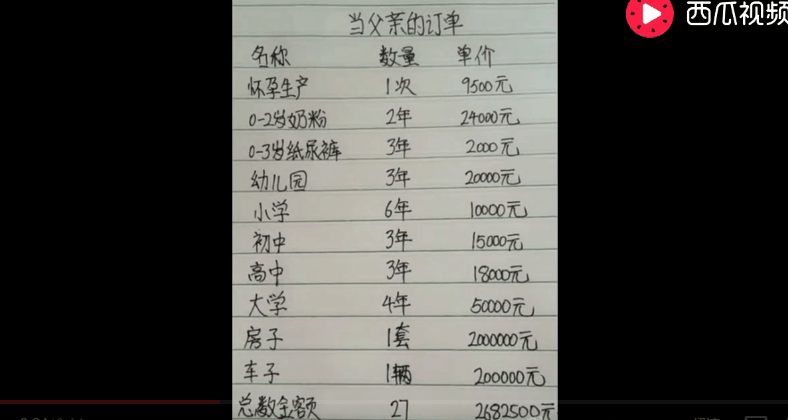 西瓜视频
当父亲的订单
名称 数量 单价
怀孕生产 1次 9500元
0-2岁奶粉 2年 24000元
0-3岁纸尿裤 3年 2000元
幼儿园 3年 20000元
小学 6年 10000元
初中 3年 15000元
高中 3年 18000元
大学 4年 50000元
房子 1套 2000000元
车子 1辆 200000元
总数金额 27 2682500元